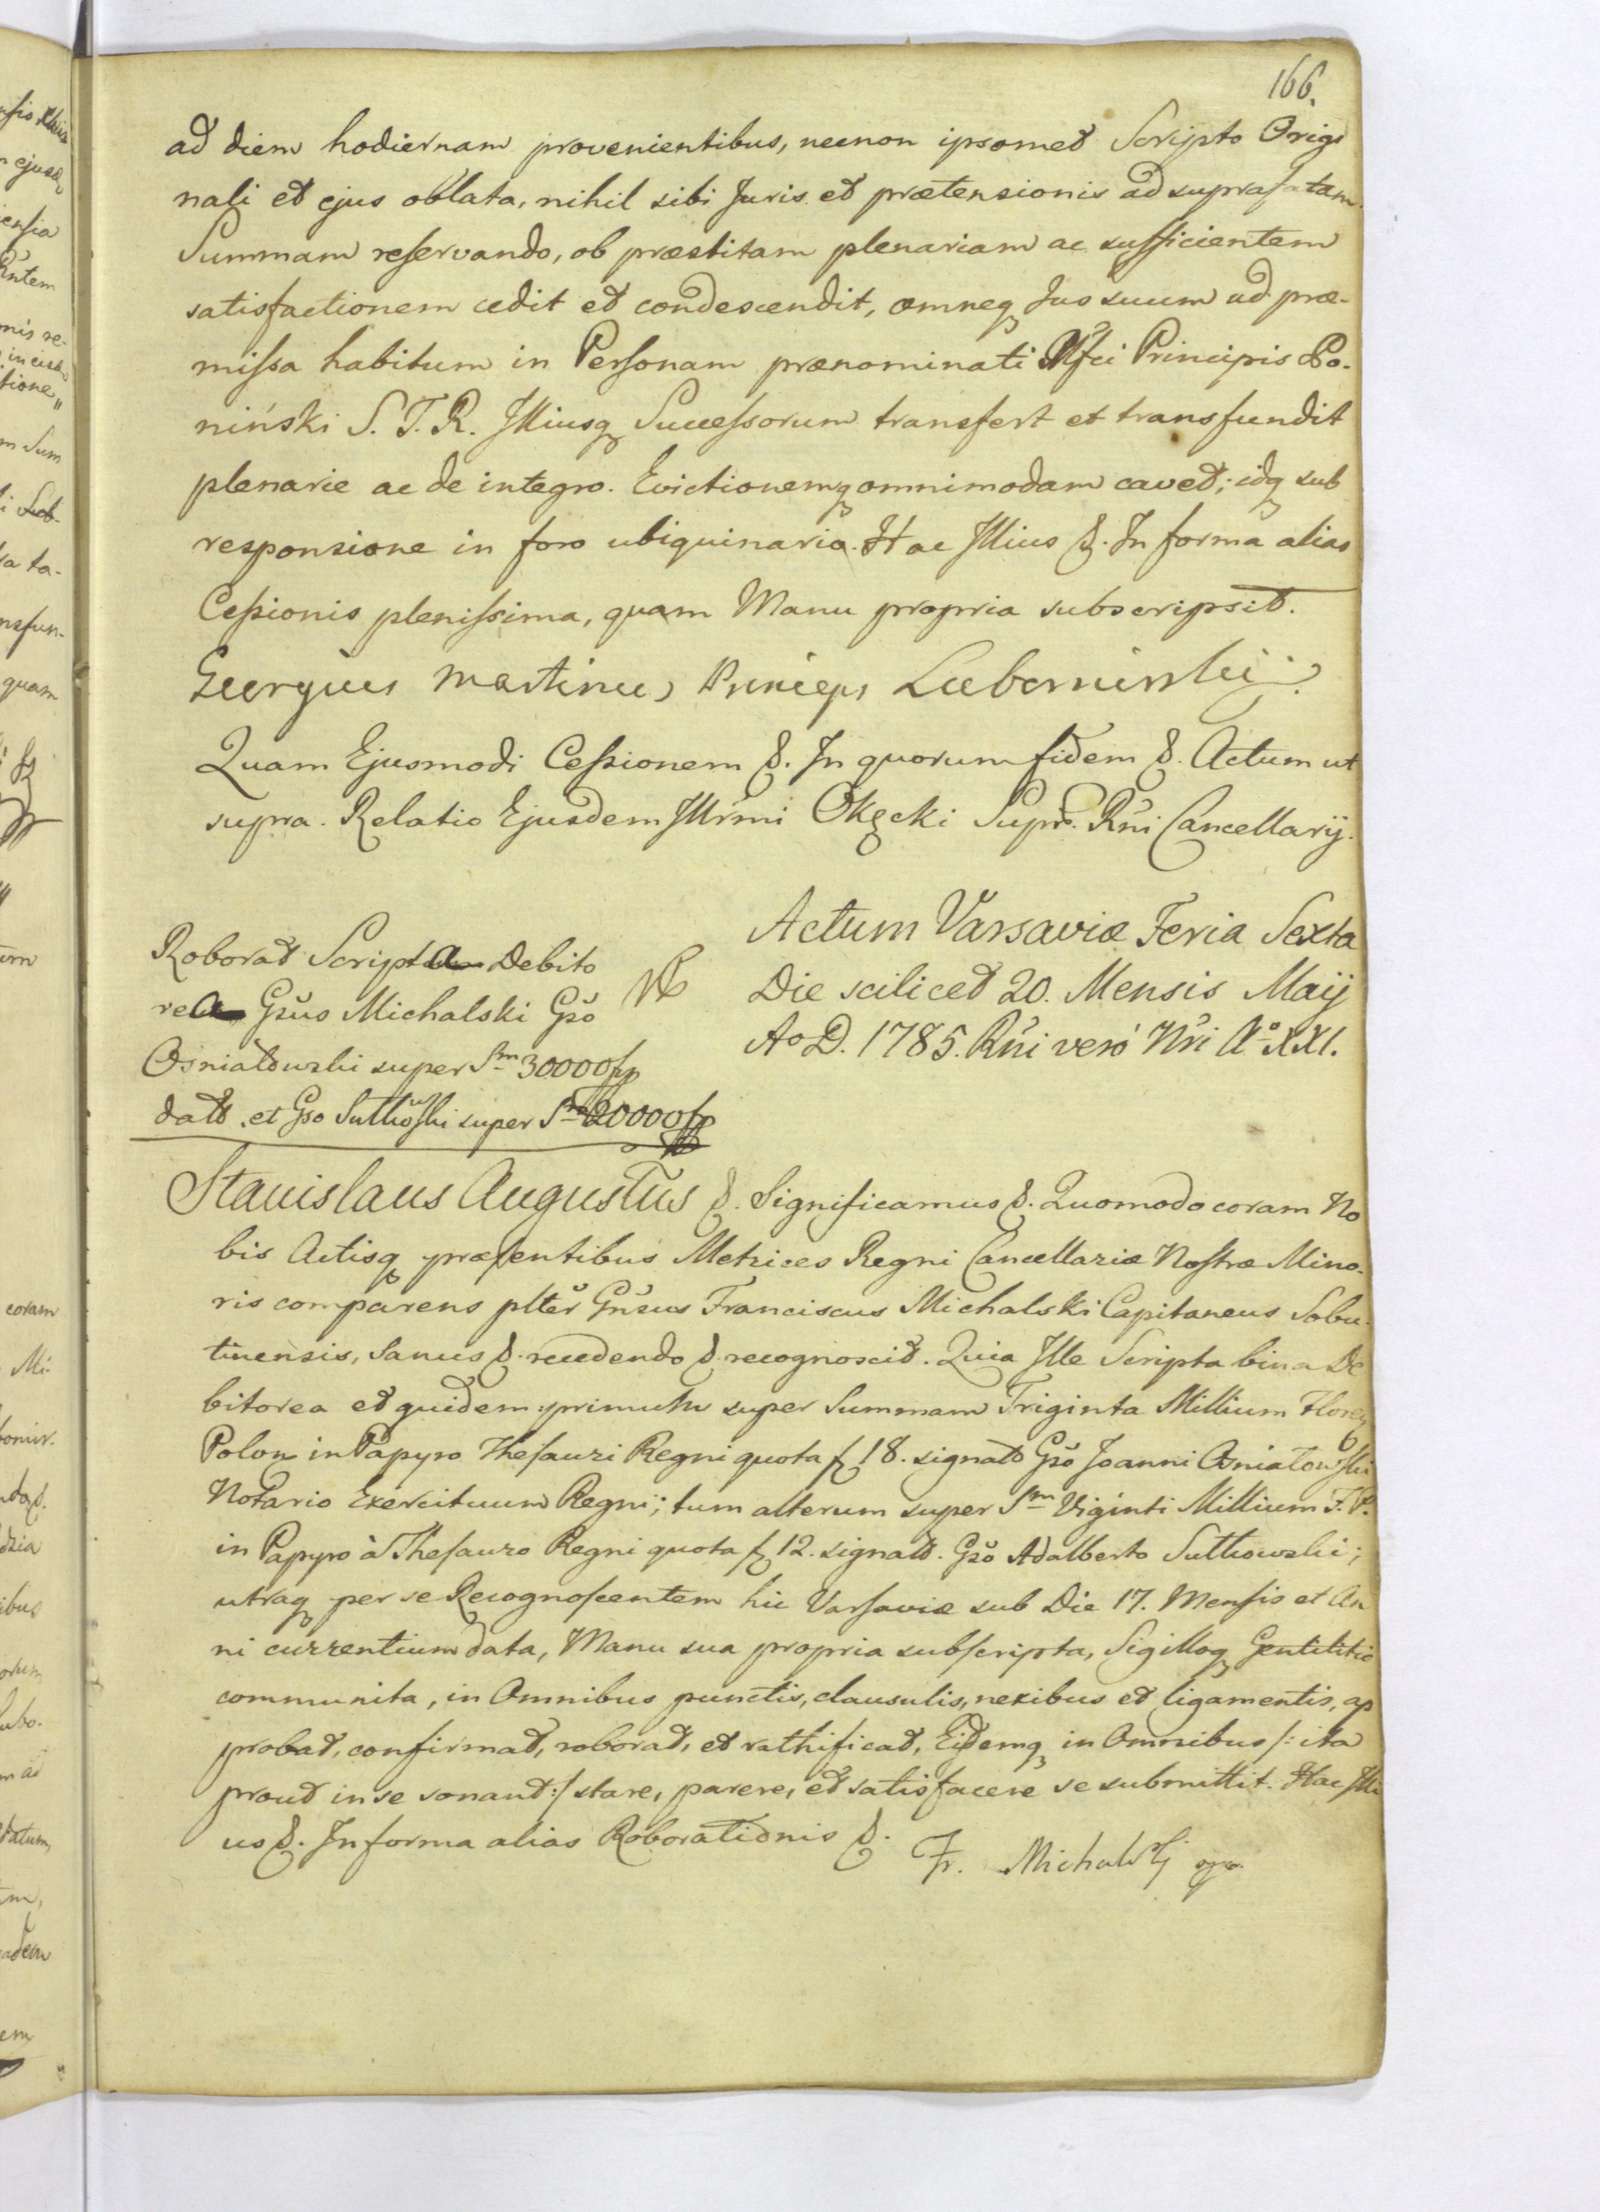 166.
ad diem hodiernam provenientibus, necnon ipsomet Scripto Origi
nali et ejus oblata, nihil sibi Juris et prætensionis ad suprafatam
Summam reservando, ob præstitam plenariam ac sufficientem
satisfactionem cedit et condescendit, omneq Jus suum ad præ-
missa habitum in Personam prænominati Principis Po-
niński S. T. R. Illiusq Successorum transfert et transfundit
plenarie ac de integro. Evictionemq omnimodam cavet; idq sub
responsione in foro ubiquinario. Hac Illius &. In forma alias
Cessionis plenissima, quam Manu propria subscripsit.
Georgius Martinus Princeps Lubomirski
Quam Ejusmodi Cessionem &. In quorum fidem &. Actum ut
supra. Relatio Ejusdem Illrmi Okęcki Supr. Rni Cancellarij.
Roborat Scripta Debito
rea Gsus Michalski Gso
Osniałowski super Sm 30000 fp
datt. et Gso Sutkowski super Sm 20000 fp
Actum Varsaviæ Feria Sexta
Die scilicet 20. Mensis Maij
Ao D. 1785. Rni vero Nri Ao XXI.
Stanislaus Augustus &. Significamus &. Quomodo coram No
bis Actisq præsentibus Metrices Regni Cancellariæ Nostræ Mino-
ris comparens plter Gnsus Franciscus Michalski Capitaneus Sobu-
tinensis, Sanus &. recedendo &. recognoscit. Quia Ille Scripta bina De
bitorea et quidem: primum super Summam Triginta Millium Floren
Polon in Papyro Thesauri Regni quota f 18. signato Gso Joanni Osniałowski
Notario Exercituum Regni; tum alterum super Sm Viginti Millium F. P.
in Papyro à Thesauro Regni quota f 12. signato. Gso Adalberto Sutkowski;
utraq per se Recognoscentem hic Varsaviæ sub Die 17. Mensis et An
ni currentium data, Manu sua propria subscripta, Sigilloq Gentilitio
communita, in Omnibus punctis, clausulis, nexibus et ligamentis, ap
probat, confirmat, roborat, et rathificat, Eidemq in Omnibus /: ita
prout in se sonant :/ stare, parere, et satisfacere se submittit. Hac Illi
us &. In forma alias Roborationis &.
Fr. Michalski